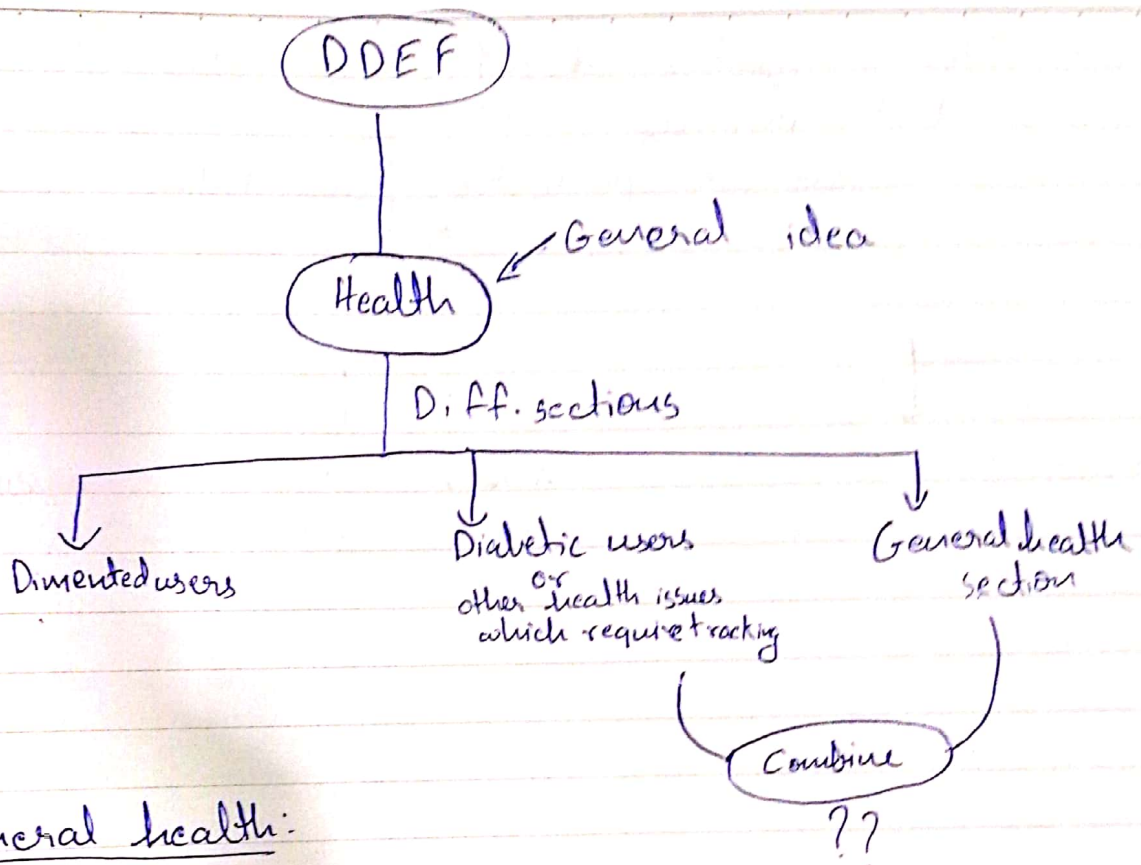 DDEF
General idea
Health
Diff. sections
Dimented users
Diabetic users
or
other health issues
which require tracking
General health
section
Combine
??
neral health: